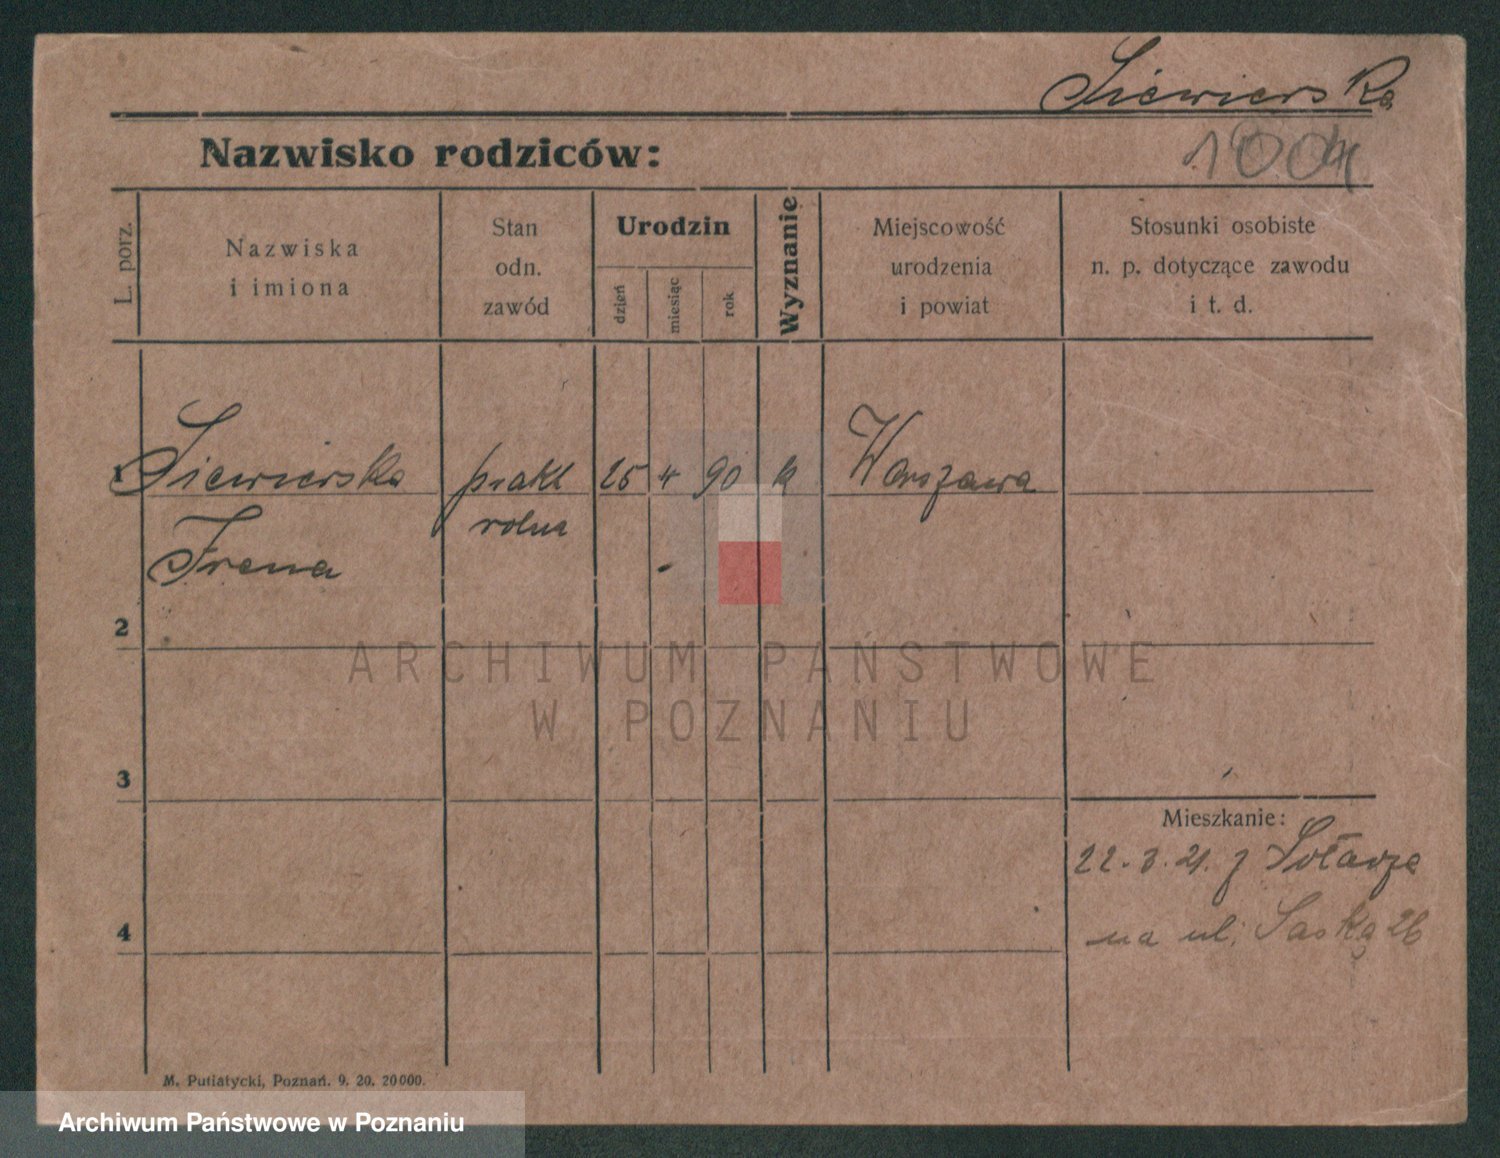 Siewierska
Nazwisko rodziców:
1004
L. porz.
Nazwiska
i imiona
Stan
odn.
zawód
Urodzin
dzień
miesiąc
rok
Wyznanie
Miejscowość
urodzenia
i powiat
Stosunki osobiste
n. p. dotyczące zawodu
i t. d.
1 Siewierska prakt 25 4 90 k Warszawa
rolna
Irena
2
ARCHIWUM PAŃSTWOWE
W POZNANIU
3
Mieszkanie:
22.3.21. z Sołacza
4
na ul. Saską 26
M. Putiatycki, Poznań. 9. 20. 20000.
Archiwum Państwowe w Poznaniu